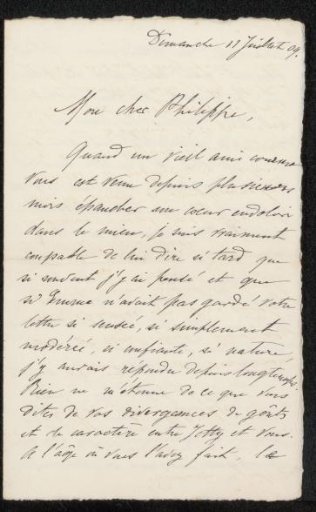 Dimanche 11 Juillet 09.
Mon cher Philippe,
Quand un vieil ami comme
vous est venu depuis plusieurs
mois épancher un cœur endolori
dans le mien, je suis vraiment
coupable de lui dire si tard que
si souvent j'y ai pensé et que
si n'avait pas gardé votre
lettre si sensée, si simplement
modérée, si confiante, si nature,
j'y aurais répondu depuis longtemps.
Rien ne m'étonne de ce que vous
dites de vos divergences de goûts
et de caractère entre Jetty et vous.
A l'âge où vous l'avez fait, la